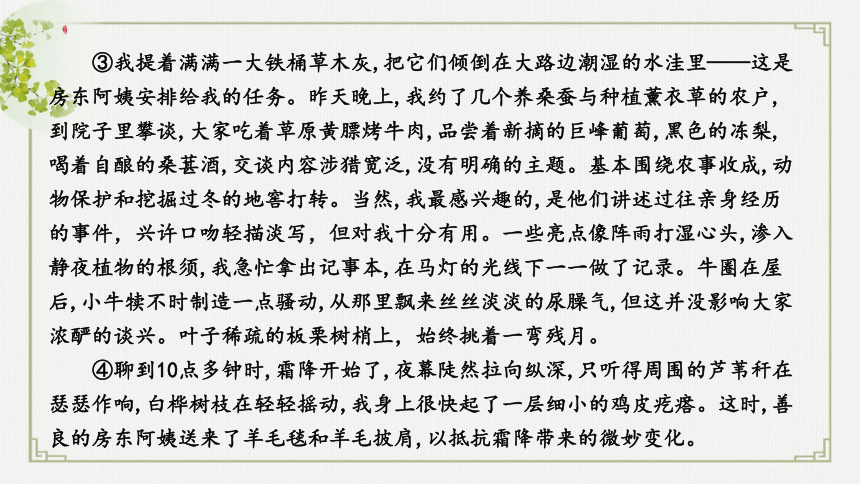 ③我提着满满一大铁桶草木灰,把它们倾倒在大路边潮湿的水洼里——这是
房东阿姨安排给我的任务。昨天晚上,我约了几个养桑蚕与种植薰衣草的农户,
到院子里攀谈,大家吃着草原黄膘烤牛肉,品尝着新摘的巨峰葡萄,黑色的冻梨,
喝着自酿的桑葚酒,交谈内容涉猎宽泛,没有明确的主题。基本围绕农事收成,动
物保护和挖掘过冬的地窖打转。当然,我最感兴趣的,是他们讲述过往亲身经历
的事件，兴许口吻轻描淡写，但对我十分有用。一些亮点像阵雨打湿心头,渗入
静夜植物的根须,我急忙拿出记事本,在马灯的光线下一一做了记录。牛圈在屋
后,小牛犊不时制造一点骚动,从那里飘来丝丝淡淡的尿臊气,但这并没影响大家
浓酽的谈兴。叶子稀疏的板栗树梢上，始终挑着一弯残月。
④聊到10点多钟时,霜降开始了,夜幕陡然拉向纵深,只听得周围的芦苇秆在
瑟瑟作响,白桦树枝在轻轻摇动,我身上很快起了一层细小的鸡皮疙瘩。这时,善
良的房东阿姨送来了羊毛毯和羊毛披肩,以抵抗霜降带来的微妙变化。